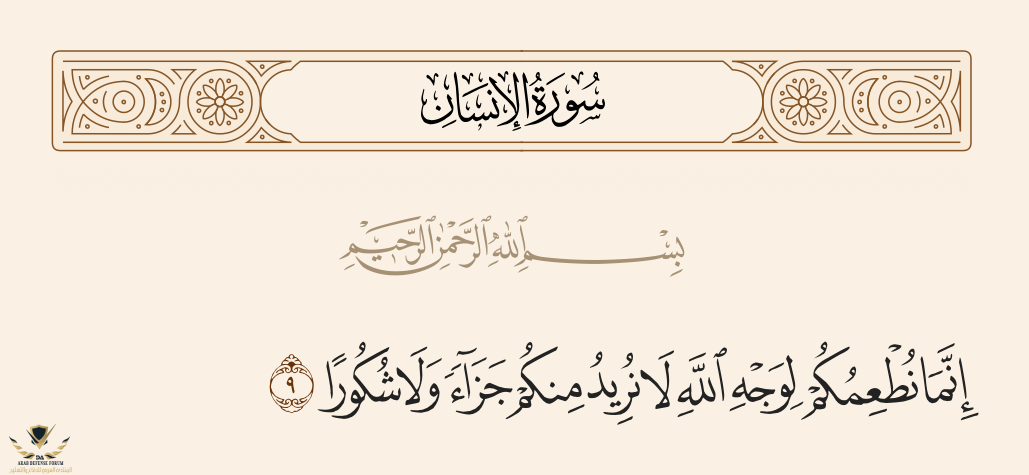 سُورَةُ الإِنسَانِ
بِسْمِ ٱللَّهِ ٱلرَّحْمَٰنِ ٱلرَّحِيمِ
إِنَّمَا نُطْعِمُكُمْ لِوَجْهِ ٱللَّهِ لَا نُرِيدُ مِنكُمْ جَزَآءً وَلَا شُكُورًا ٩
DA
ARAB DEFENSE FORUM
المنتدى العربي للدفاع والتسليح